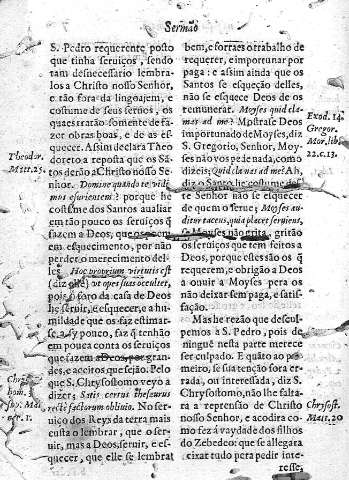 Sermão
S. Pedro requerente posto
que tinha seruiços, sendo
tam desnecessario lembra-
los a Christo nosso Senhor,
e tão fora da lingoajem, e
costume de seus seruos, os
quaes tratão somente de fa-
zer obras boas, e de as es-
quecer. Assim declara Theo
doreto a reposta que os Sã-
tos derão a Christo nosso Se-
nhor. Domine quando te vidi-
mus esurientem? porque he
costume dos Santos aualiar
em tão pouco os seruiços q̃
fazem a Deos, que os poem
em esquecimento, por não
perder o merecimento del-
les. Hoc proprium virtutis est
(diz elle) vt opes suas occultet,
pois o foro da casa de Deos
he seruir, e esquecer, e a hu-
mildade que os faz estimar-
se em pouco, faz q̃ tenhão
em pouca conta os seruiços
que fazem a Deos, por gran-
des, e aceitos que sejão. Pelo
que S. Chrysostomo veyo a
dizer; Satis certus thesaurus
recte factorum obliuio. No ser-
uiço dos Reys da terra mais
custa o lembrar, que o ser-
uir, mas a Deos, seruir, e es-
quecer, que elle se lembrat
Theodor.
Matt. 25.
Chrys.
hom.
sup. Mat
bem, e forraes o trabalho de
requerer, e importunar por
paga: e assim ainda que os
Santos se esqueção delles,
não se esquece Deos de os
remunerar. Moyses quid cla-
mas ad me? Mostrase Deos
importunado de Moyses, diz
S. Gregorio, Senhor, Moy-
ses não vos pede nada, como
dizeis; Quid clamas ad me? Ah,
diz o Santo, he costume des
te Senhor não se esquecer
de quem o serue; Moyses au-
ditur tacens, quia placet seruiens,
se Moyses não grita, gritão
os seruiços que tem feitos a
Deos, porque estes são os q̃
requerem, e obrigão a Deos
a ouuir a Moyses pera os
não deixar sem paga, e satis-
fação.
Mas he rezão que descul-
pemos a S. Pedro, pois de
ningué nesta parte merece
ser culpado. E quãto ao pri-
meiro, se sua tenção fora er-
rada, ou interessada, diz S.
Chrysostomo, não lhe falta-
ra a reprensão de Christo
nosso Senhor, e acodira co-
mo fez á vaydade dos filhos
do Zebedeo: que se allegara
eixar tudo pera pedir inte-
resse,
Exod. 14.
Gregor.
Mor. lib.
22. c. 13.
Chrysost.
Matt. 20